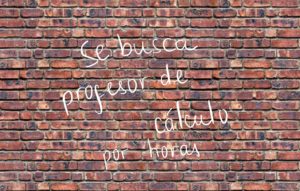 Se busca
profesor de
cálculo
por horas